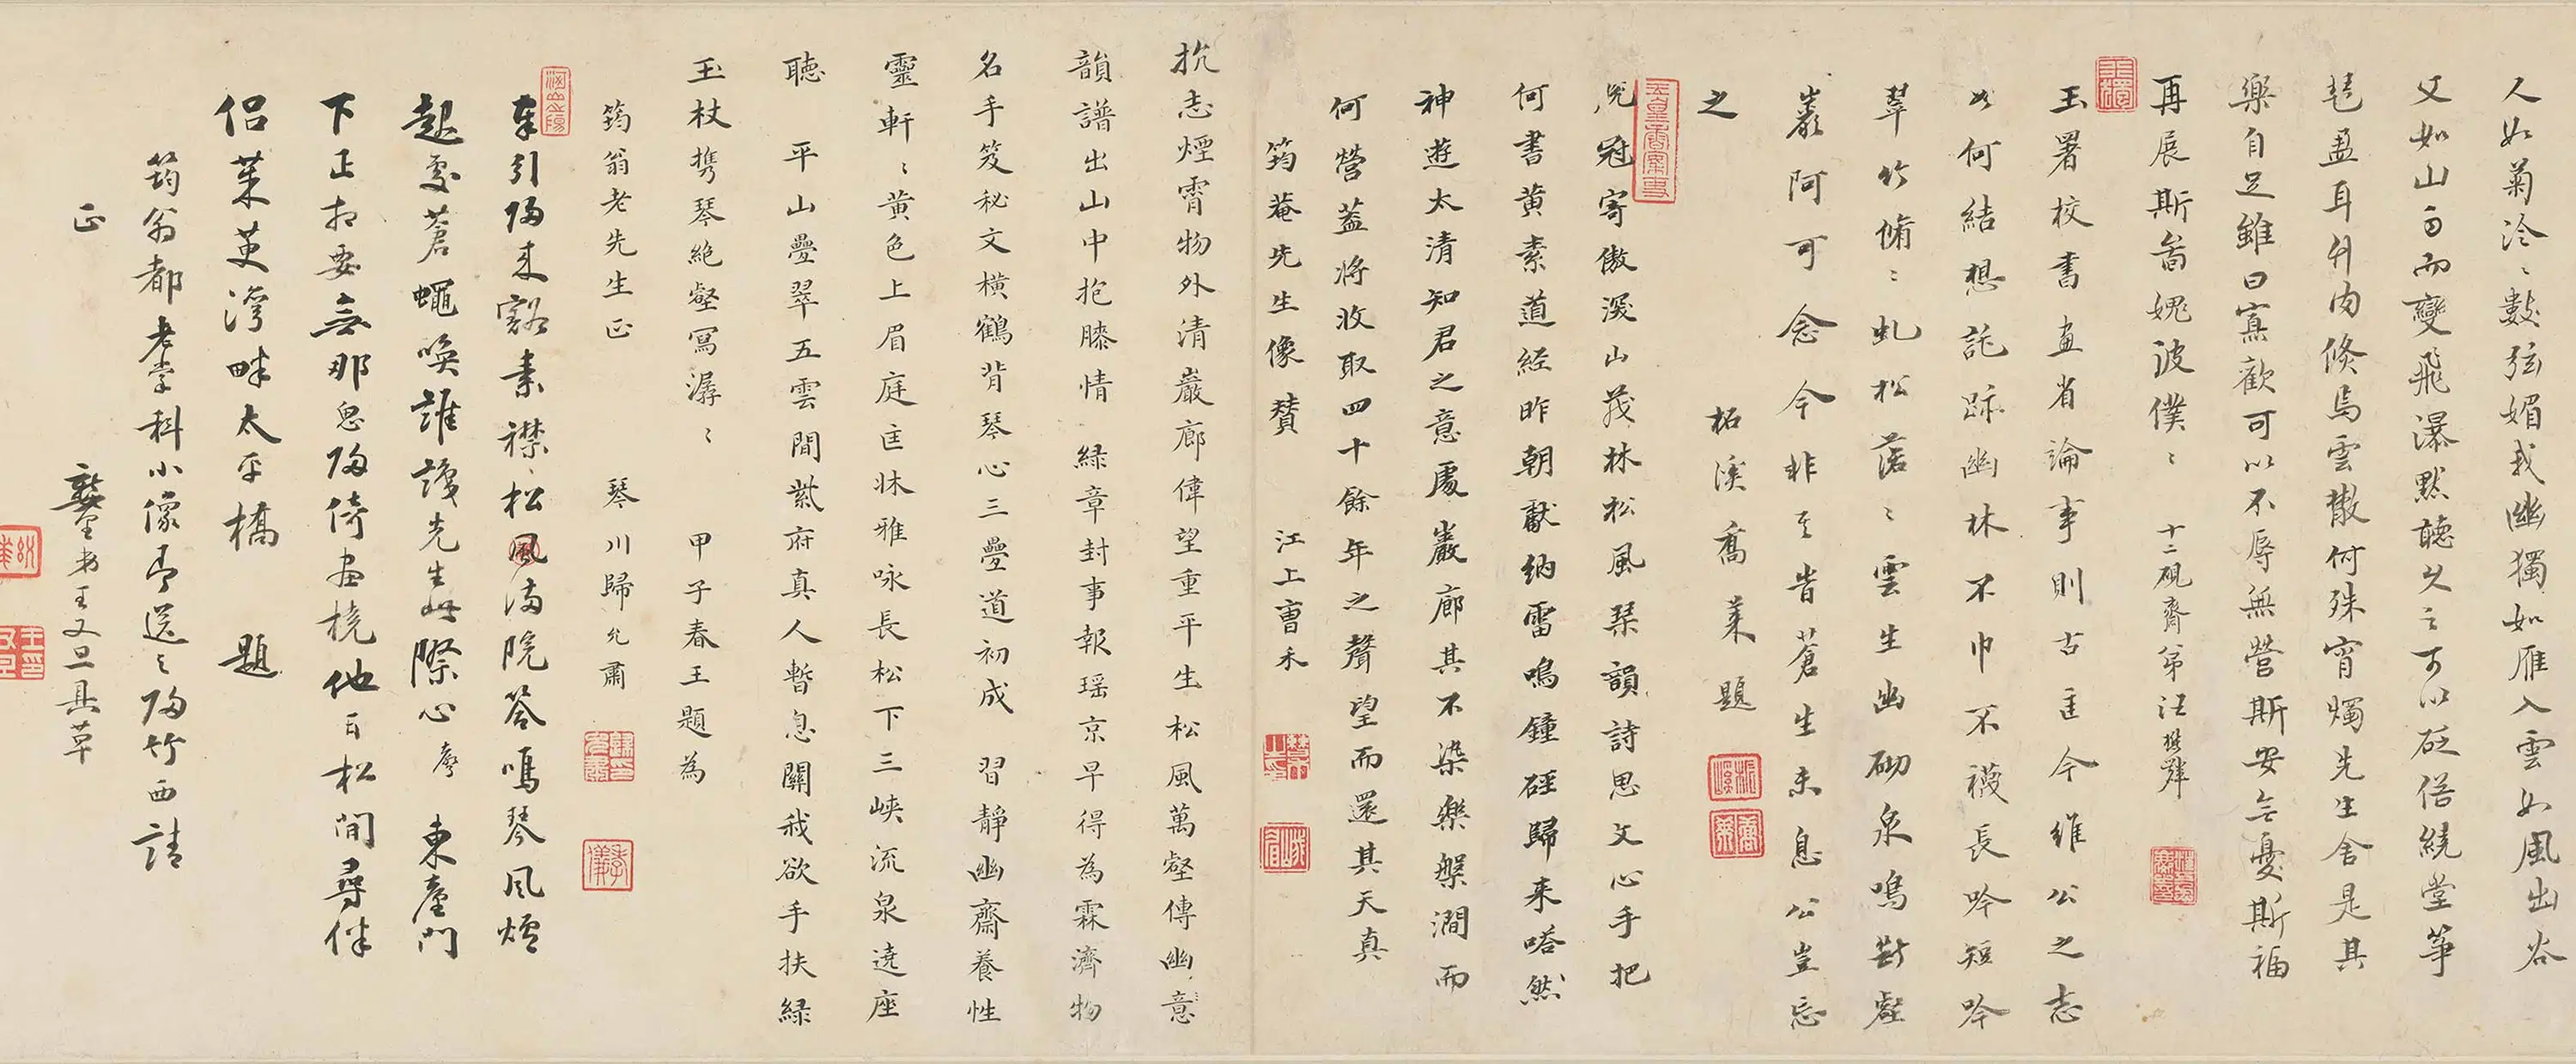 人如菊泠〻數弦媚我幽獨如雁入雲如風出谷
又如山雨而變飛瀑默聽久之可以砭俗繞堂箏
琶盈耳升肉倏焉雲散何殊宵燭先生舍是其
樂自足雖曰寡歡可以不辱無營斯安無憂斯福
再展斯啚媿彼僕〻 十二硯齋弟汪懋麟
玉署校書畫省論事則古匡今維公之志
如何結想託跡幽林不巾不襪長吟短吟
翠竹翛〻虬松落〻雲生幽砌泉鳴斷壑
巖阿可念今非其皆蒼生未息公豈忘
之 柘溪喬萊題
免冠寄傲深山茂林松風琴韻詩思文心手把
何書黄素道経昨朝獻納雷鳴鐘硜歸来嗒然
神遊太清知君之意處巖廊其不染樂槃澗而
何營蓋將收取四十餘年之聲望而還其天真
筠菴先生像賛 江上曹禾
抗志煙霄物外清巖廊偉望重平生松風萬壑傳幽意
韻譜出山中抱膝情 緑章封事報瑶京早得為霖濟物
名手笈秘文横鶴背琴心三疊道初成 習靜幽齋養性
靈軒〻黄色上眉庭匡牀雅咏長松下三峽流泉遶座
聴 平山疊翠五雲間紫府真人暫息關我欲手扶緑
玉杖携琴絶壑冩潺〻 甲子春王題為
筠翁老先生正 琴川歸允肅
車引歸来豁素襟松風滿院答鳴琴風爐
起處蒼蠅喚誰識先生此際心 東華門
下正相要無那恩歸倚畫橈他日松間尋伴
侶茱萸灣畔太平橋 題
筠翁都老掌科小像即送之歸竹西請
正 龏里弟王又旦具草